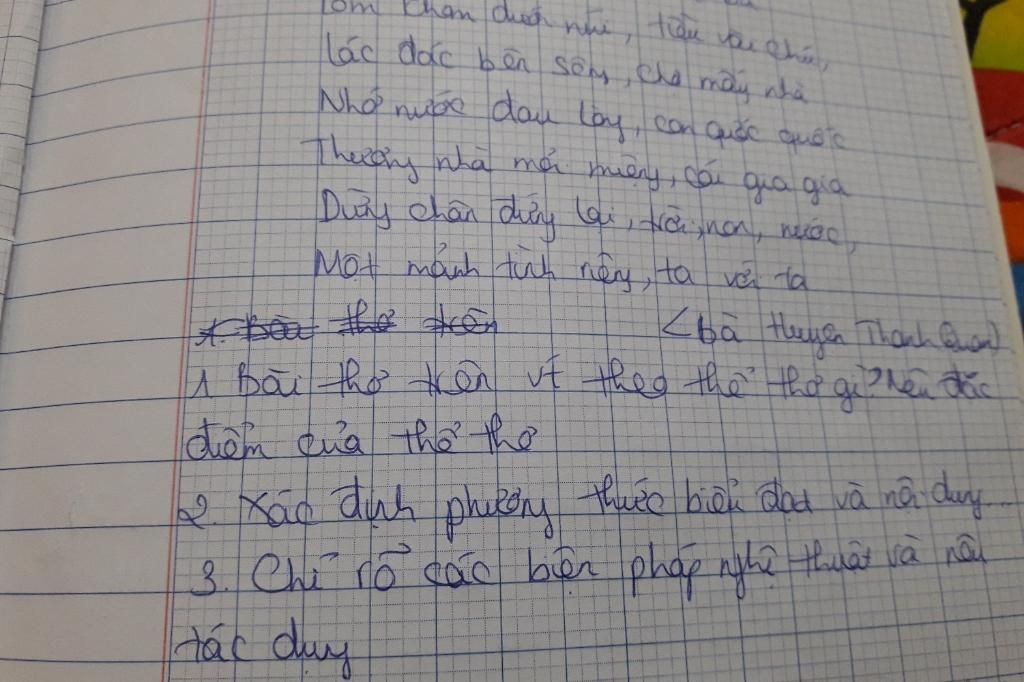 Lom khom dưới núi, tiều vài chú,
Lác đác bên sông, chợ mấy nhà
Nhớ nước đau lòng, con quốc quốc
Thương nhà mỏi miệng, cái gia gia
Dừng chân đứng lại, trời, non, nước,
Một mảnh tình riêng, ta với ta
1. Bài thơ trên <bà Huyện Thanh Quan)
1 Bài thơ trên vt theo thể thơ gì? Nêu đặc
điểm của thể thơ
2. Xác định phương thức biểu đạt và nội dung
3. Chỉ rõ các biện pháp nghệ thuật và nêu
tác dụng